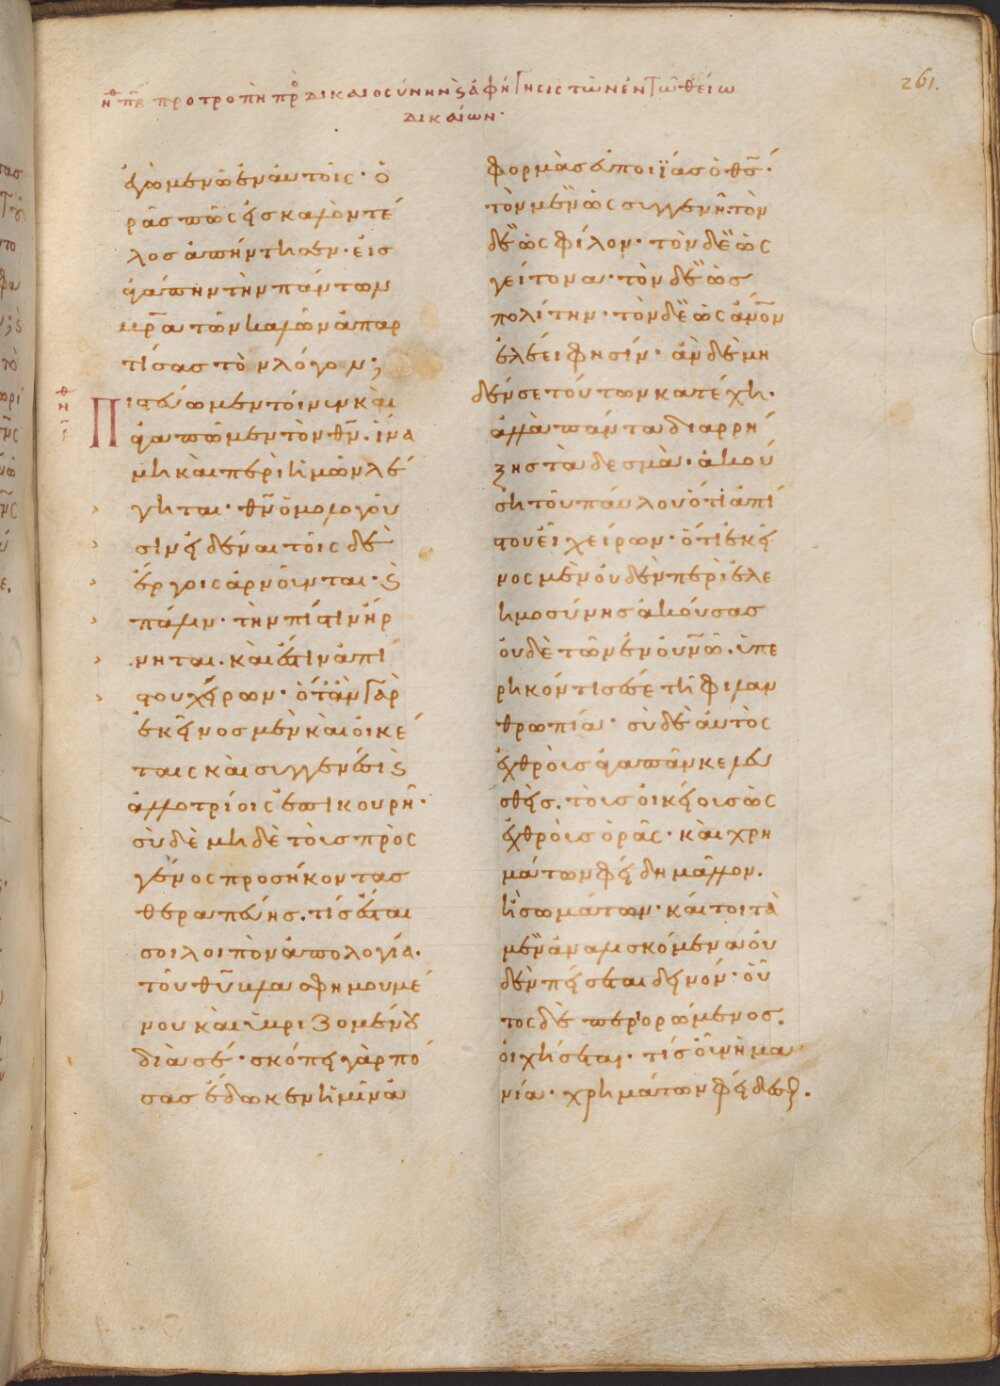 261.
προτροπὴ πρ δικαιοσύνην ϗ ἀφήγησις τῶν ἐν τῶ θείω
δικαίων·
ἐγὼ μένω ἐν ἀυτοῖς· ὁ
ρᾶς πῶς ἐς καλὸν τέ
λος ἀπήντησεν· εἰς
ἀγάπην τὴν πάντων
μρ̅α τῶν καλῶν ἀπαρ
τίσας τὸν λόγον;
Πιστεύωμεν τοίνυν καὶ
ἀγαπῶμεν τὸν θν̅· ἵνα
μὴ καὶ περὶ ἡμῶν λέ
γηται· θν̅ ὁμολογοῦ
σιν εἰδέναι τοῖς δὲ
ἔργοις ἀρνοῦνται· ϗ
πάλιν· τὴν πίστιν ἤρ
νηται· καὶ ἔστιν ἀπί
στου χείρων· ὅταν γὰρ
ἐκεῖνος μὲν καὶ οἰκέ
ταις καὶ συγγενέσι ϗ
ἀλλοτρίοις ἐπικουρῆ·
σὺ δὲ μηδὲ τοὺς πρὸς
γένος προσήκοντας
θεραπεύης· τίς ἔσται
σοι λοιπὸν ἀπολογία·
τοῦ θυ̅ βλασφημουμέ
νου καὶ ὑβριζομένου
διὰ σέ· σκόπει γὰρ πό
σας ἔδωκεν ἡμῖν ἀ
φορμὰς εὐποιΐας ὁ θς̅·
τὸν μὲν ὡς συγγενῆ· τὸν
δὲ ὡς φίλον· τὸν δὲ ὡς
γείτονα· τὸν δὲ ὡς
πολίτην· τὸν δὲ ὡς ἀνον̅
ἐλέει φησίν· ἂν δὲ μη
δέν σε τούτων κατέχη·
ἀλλὰ πάντα διαρρή
ξης τὰ δεσμὰ· ἀκού
ση τοῦ παύλου ὅτι ἀπί
στου εἶ χείρων· ὅτι ἐκεῖ
νος μὲν οὐδὲν περὶ ἐλε
ημοσύνης ἀκούσας
οὐδὲ τῶν ἐν οὐνω̅· ὑπε
ρηκόντισέ σε τῆ φιλαν
θρωπία· σὺ δὲ ἀυτὸς
ἐχθροὺς ἀγαπᾶν κελευ
σθεὶς· τοὺς οἰκείους ὡς
ἐχθροὺς ὁρᾶς· καὶ χρη
μάτων φείδη μᾶλλον·
ἢ σωμάτων· καίτοι τὰ
μὲν ἀναλισκόμενα οὐ
δὲν πείσεται δεινόν· οὗ
τος δὲ περιορώμενος·
οἰχήσεται· τίς οὖν ἡ μα
νία· χρημάτων φείδεσθαι·